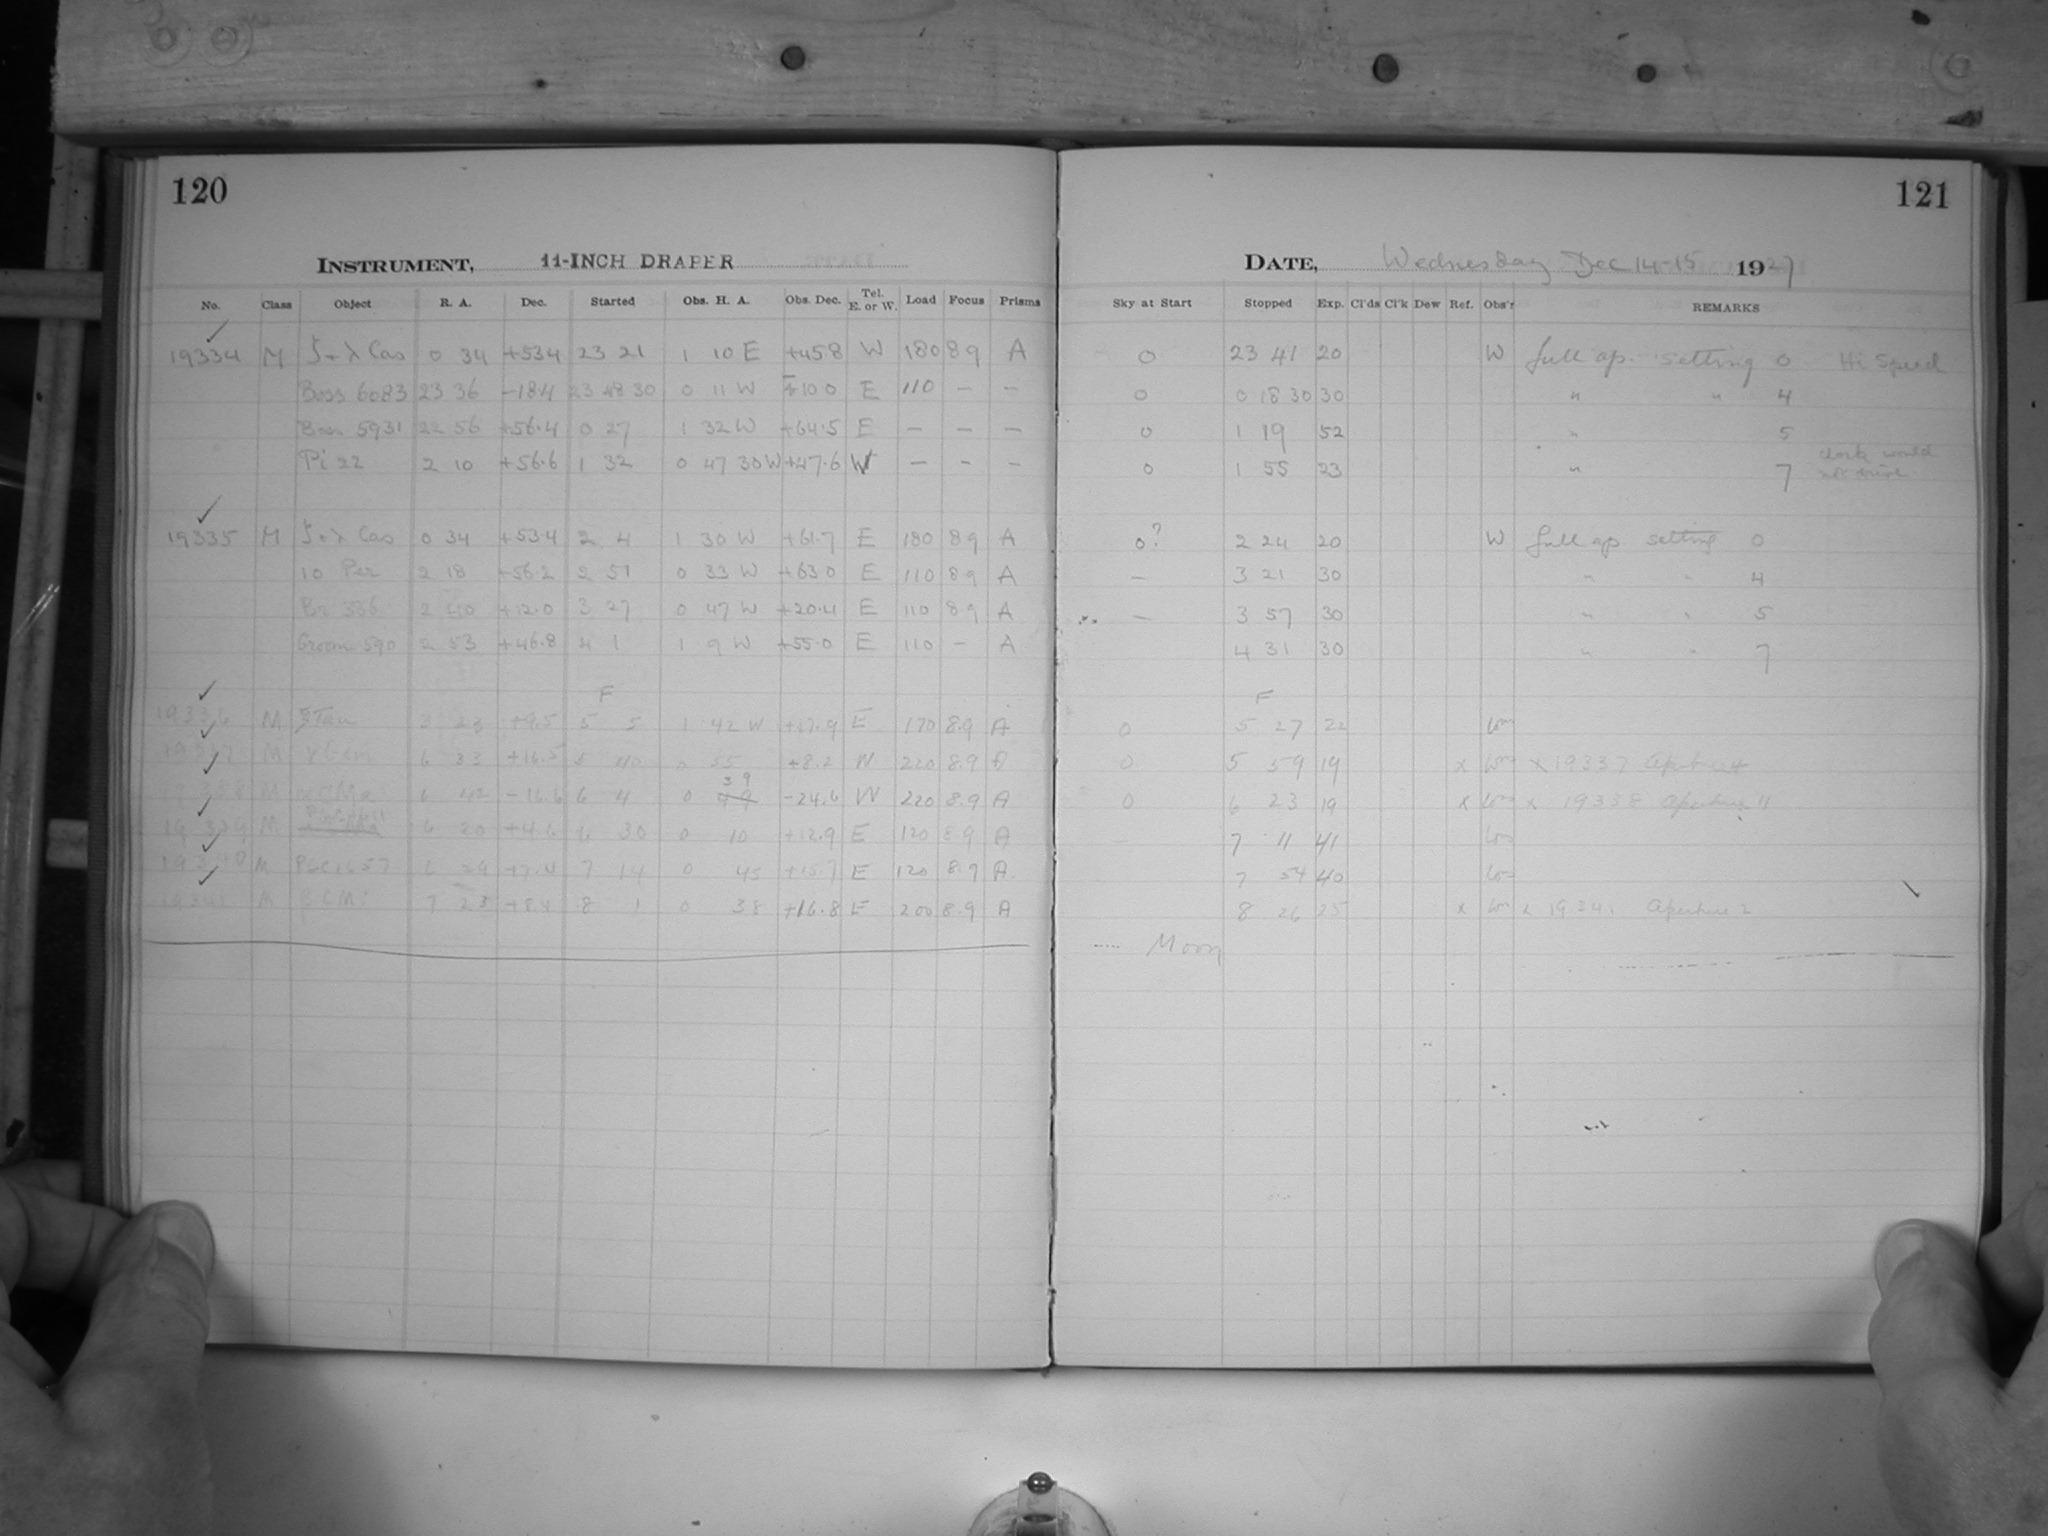 120
121
INSTRUMENT, 11-INCH DRAPER
DATE, Wednesday Dec 14-15 1927
No. Class Object R. A. Dec. Started Obs. H. A. Obs. Dec. Tel. E. or W. Load Focus Prisms Sky at Start Stopped Exp. Cl'ds Cl'k Dew Ref. Obs'r REMARKS
19334 M ζ+λ Cas 0 34 +53.4 23 21 1 10 E +45.8 W 180 8.9 A 0 23 41 20 W full ap. setting 0 Hi Speed
Boss 6083 23 36 -18.4 23 48 30 0 11 W -10 0 E 110 — — 0 0 18 30 30 " " 4
Boss 5931 22 56 +56.4 0 27 1 32 W +64.5 E — — — 0 1 19 52 " 5
Pi 22 2 10 +56.6 1 32 0 47 30 W +47.6 W — — — 0 1 55 23 " 7 clock would not drive
19335 M ζ+λ Cas 0 34 +53.4 2 4 1 30 W +61.7 E 180 8 9 A 0? 2 24 20 W full ap setting 0
10 Per 2 18 +56.2 2 51 0 33 W +63.0 E 110 8 9 A — 3 21 30 " " 4
Br 336 2 40 +12.0 3 27 0 47 W +20.4 E 110 8 9 A — 3 57 30 " " 5
Groom 590 2 53 +46.8 4 1 1 9 W +55.0 E 110 — A 4 31 30 " " 7
F F
19336 M Tau 3 23 +9.5 5 5 1 42 W +17.9 E 170 8.9 A 0 5 27 22
19337 M γ Gem 6 33 +16.5 5 40 0 55 +8.2 W 220 8.9 A 0 5 59 19 x x 19337 Aperture
19338 M α CMa 6 42 -16.6 6 4 0 39 -24.6 W 220 8.9 A 0 6 23 19 x x 19338 Aperture 11
19339 M 6 20 +4.6 6 30 0 10 +12.9 E 120 8 9 A — 7 11 41
19340 M PGC1657 6 29 +7.4 7 14 0 45 +15.7 E 120 8.9 A 7 54 40
19341 M β CMi 7 23 +8.4 8 1 0 38 +16.8 E 200 8.9 A 8 26 25 x x 19341 Aperture 2
Moon